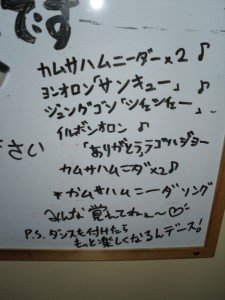 です
カムサハムニーダー×2♪
ヨンオロン「サンキュー」♪
ジュングゴン「シェシェー」
イルボンオロン♪
さい
「ありがとうってゴハダヨー
カムサハムニーダ×2♪
*カムサハムニーダソング
みんな覚えてねぇ〜♡
P.S.ダンスも付けたら
もっと楽しくなるんデース!